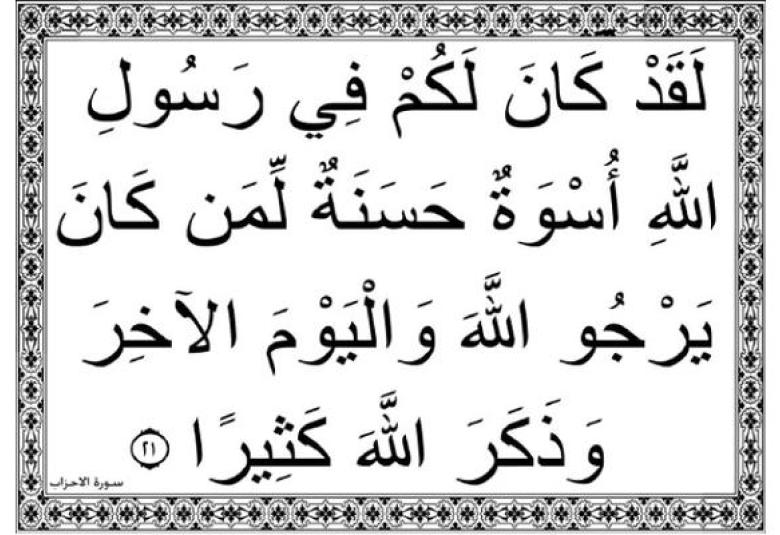 لَقَدْ كَانَ لَكُمْ فِي رَسُولِ
اللَّهِ أُسْوَةٌ حَسَنَةٌ لِّمَن كَانَ
يَرْجُو اللَّهَ وَالْيَوْمَ الآخِرَ
وَذَكَرَ اللَّهَ كَثِيرًا ٢١
سورة الاحزاب